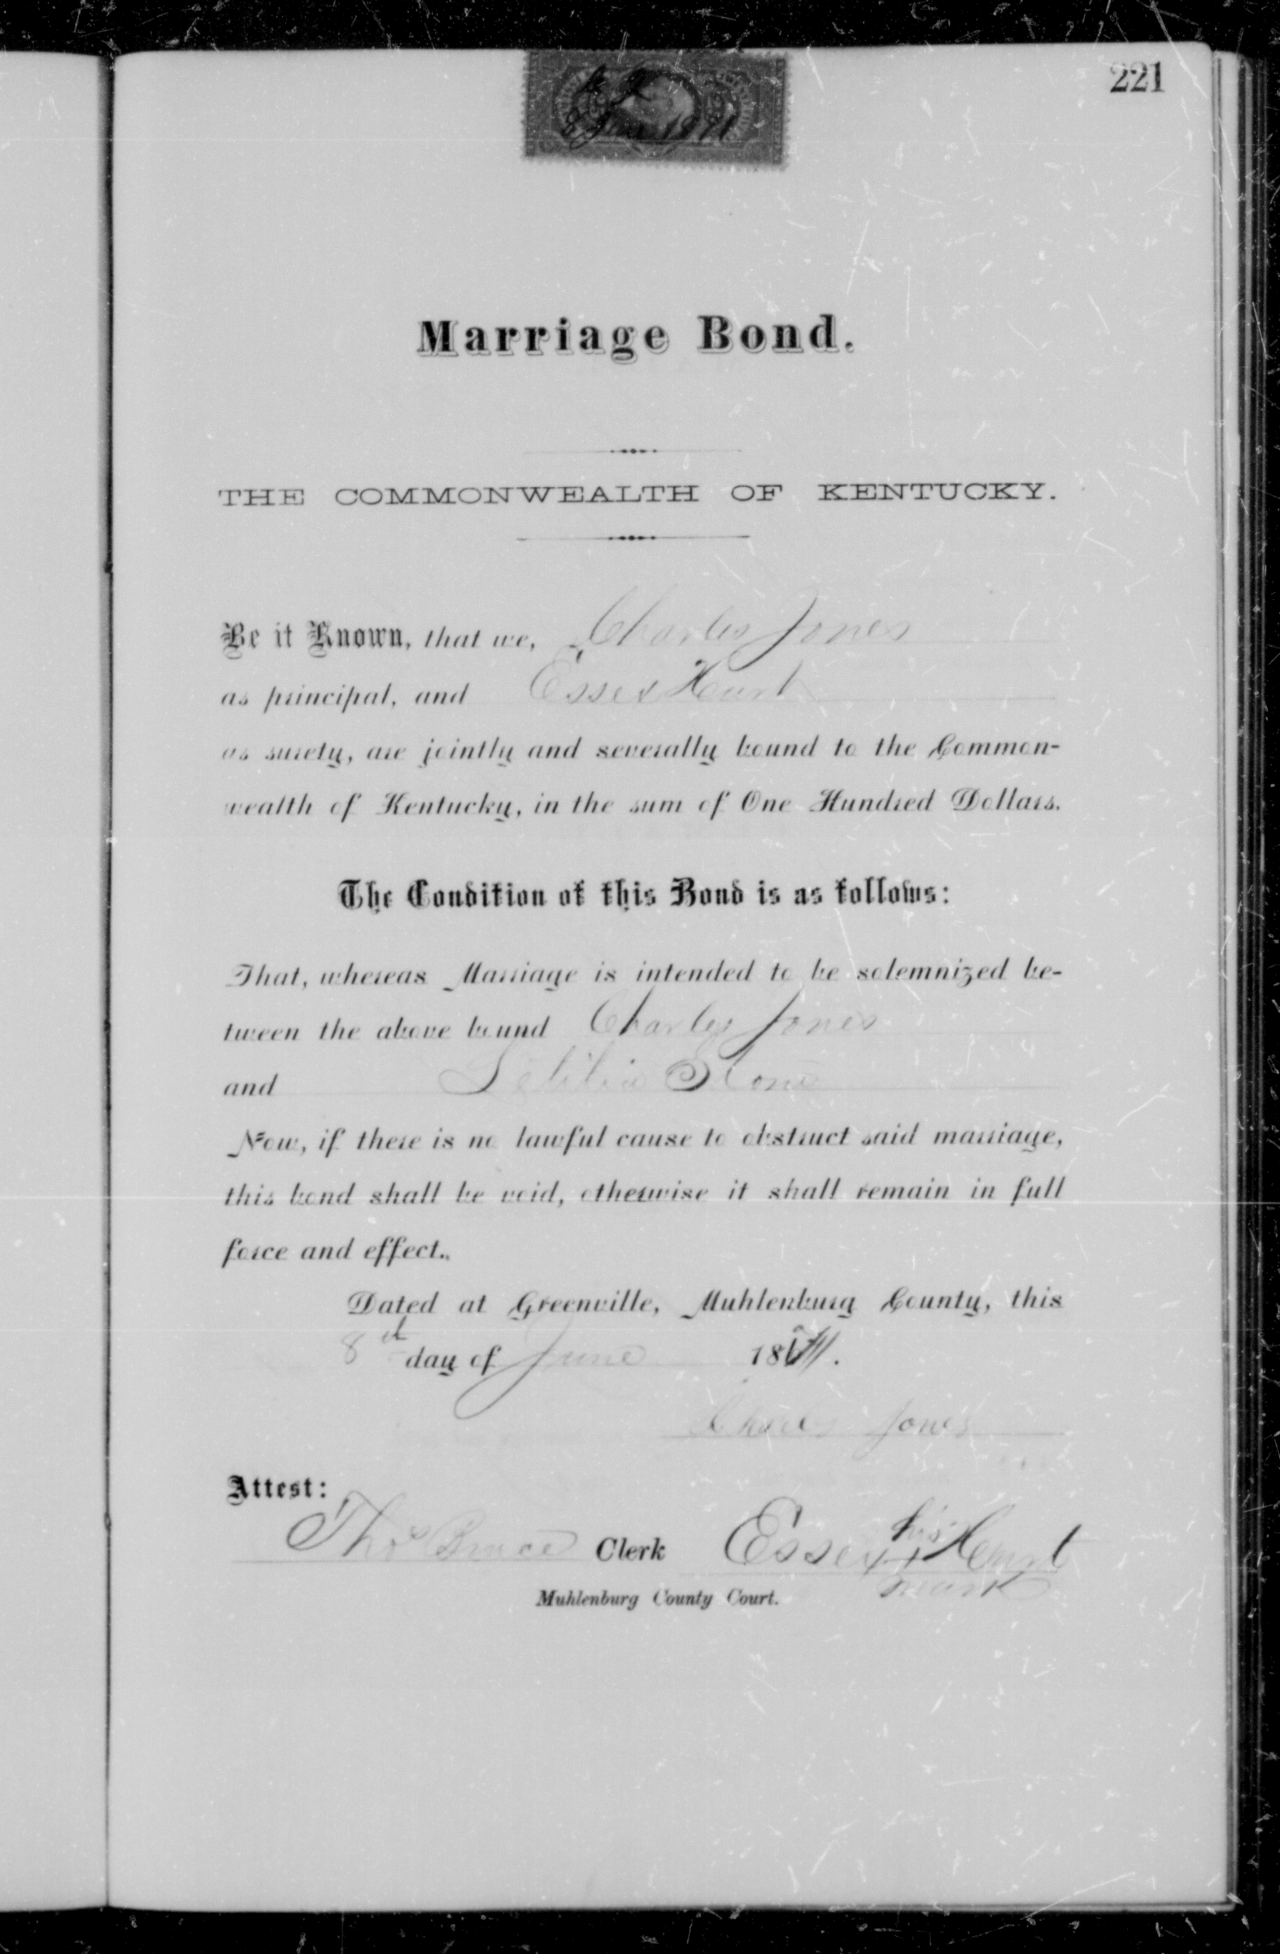 221
8 June 1871
Marriage Bond.
THE COMMONWEALTH OF KENTUCKY.
Be it Known, that we, Charles Jones
as principal, and Essex Hunt
as surety, are jointly and severally bound to the Common-
wealth of Kentucky, in the sum of One Hundred Dollars.
The Condition of this Bond is as follows:
That, whereas Marriage is intended to be solemnized be-
tween the above bound Charles Jones
and Letitia
Now, if there is no lawful cause to obstruct said marriage,
this bond shall be void, otherwise it shall remain in full
force and effect.
Dated at Greenville, Muhlenburg County, this
8th day of June 1871.
Charles Jones
Attest:
Thos Bruce Clerk Essex his + Hunt
mark
Muhlenburg County Court.